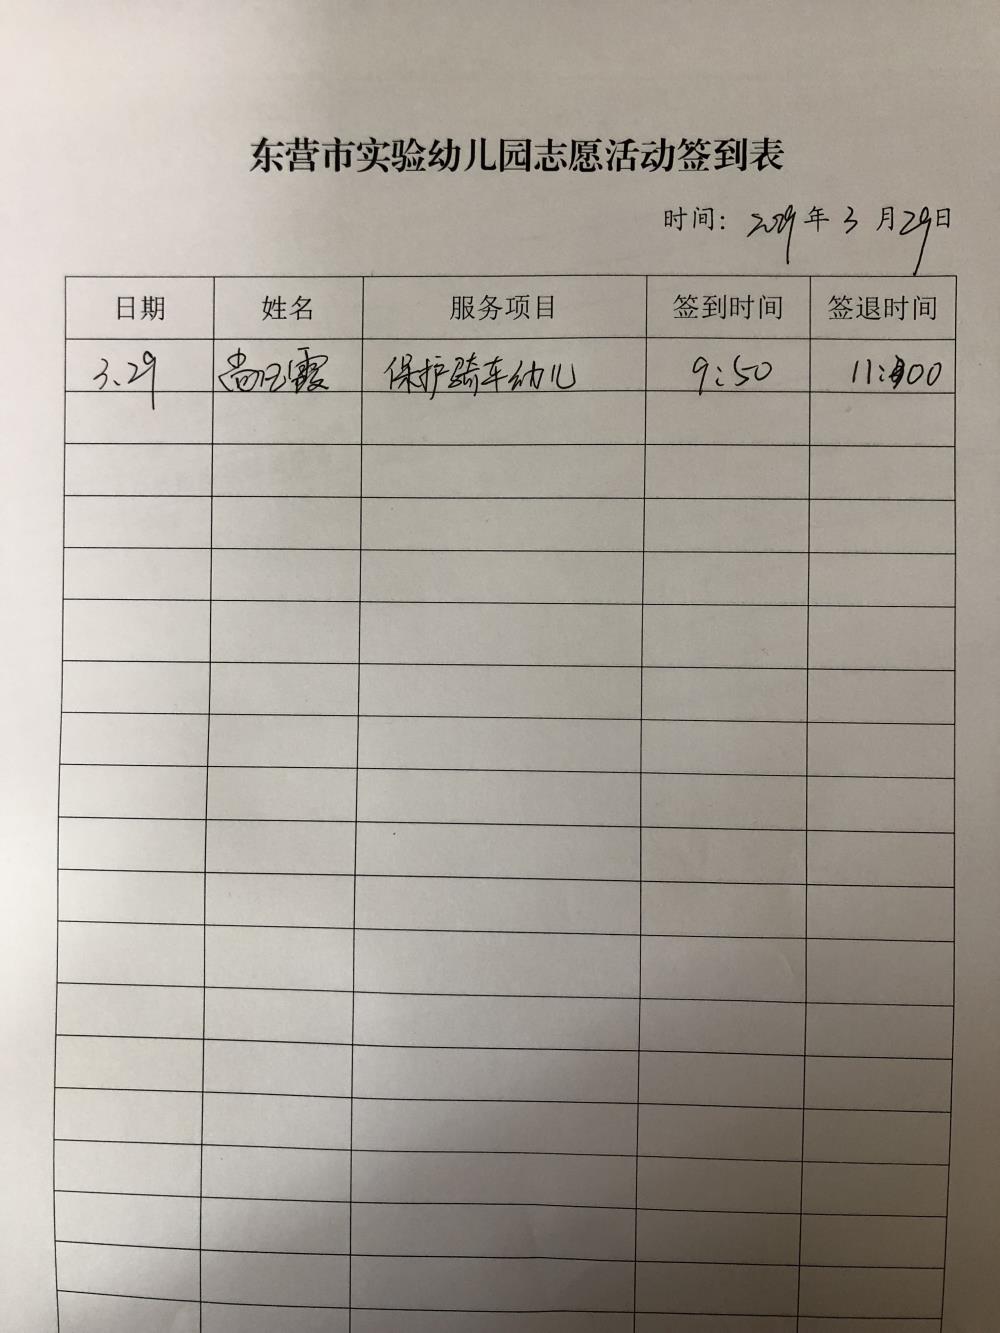 东营市实验幼儿园志愿活动签到表
时间: 2019年3月29日
日期 姓名 服务项目 签到时间 签退时间
3.29 尚玉霞 保护骑车幼儿 9:50 11:00